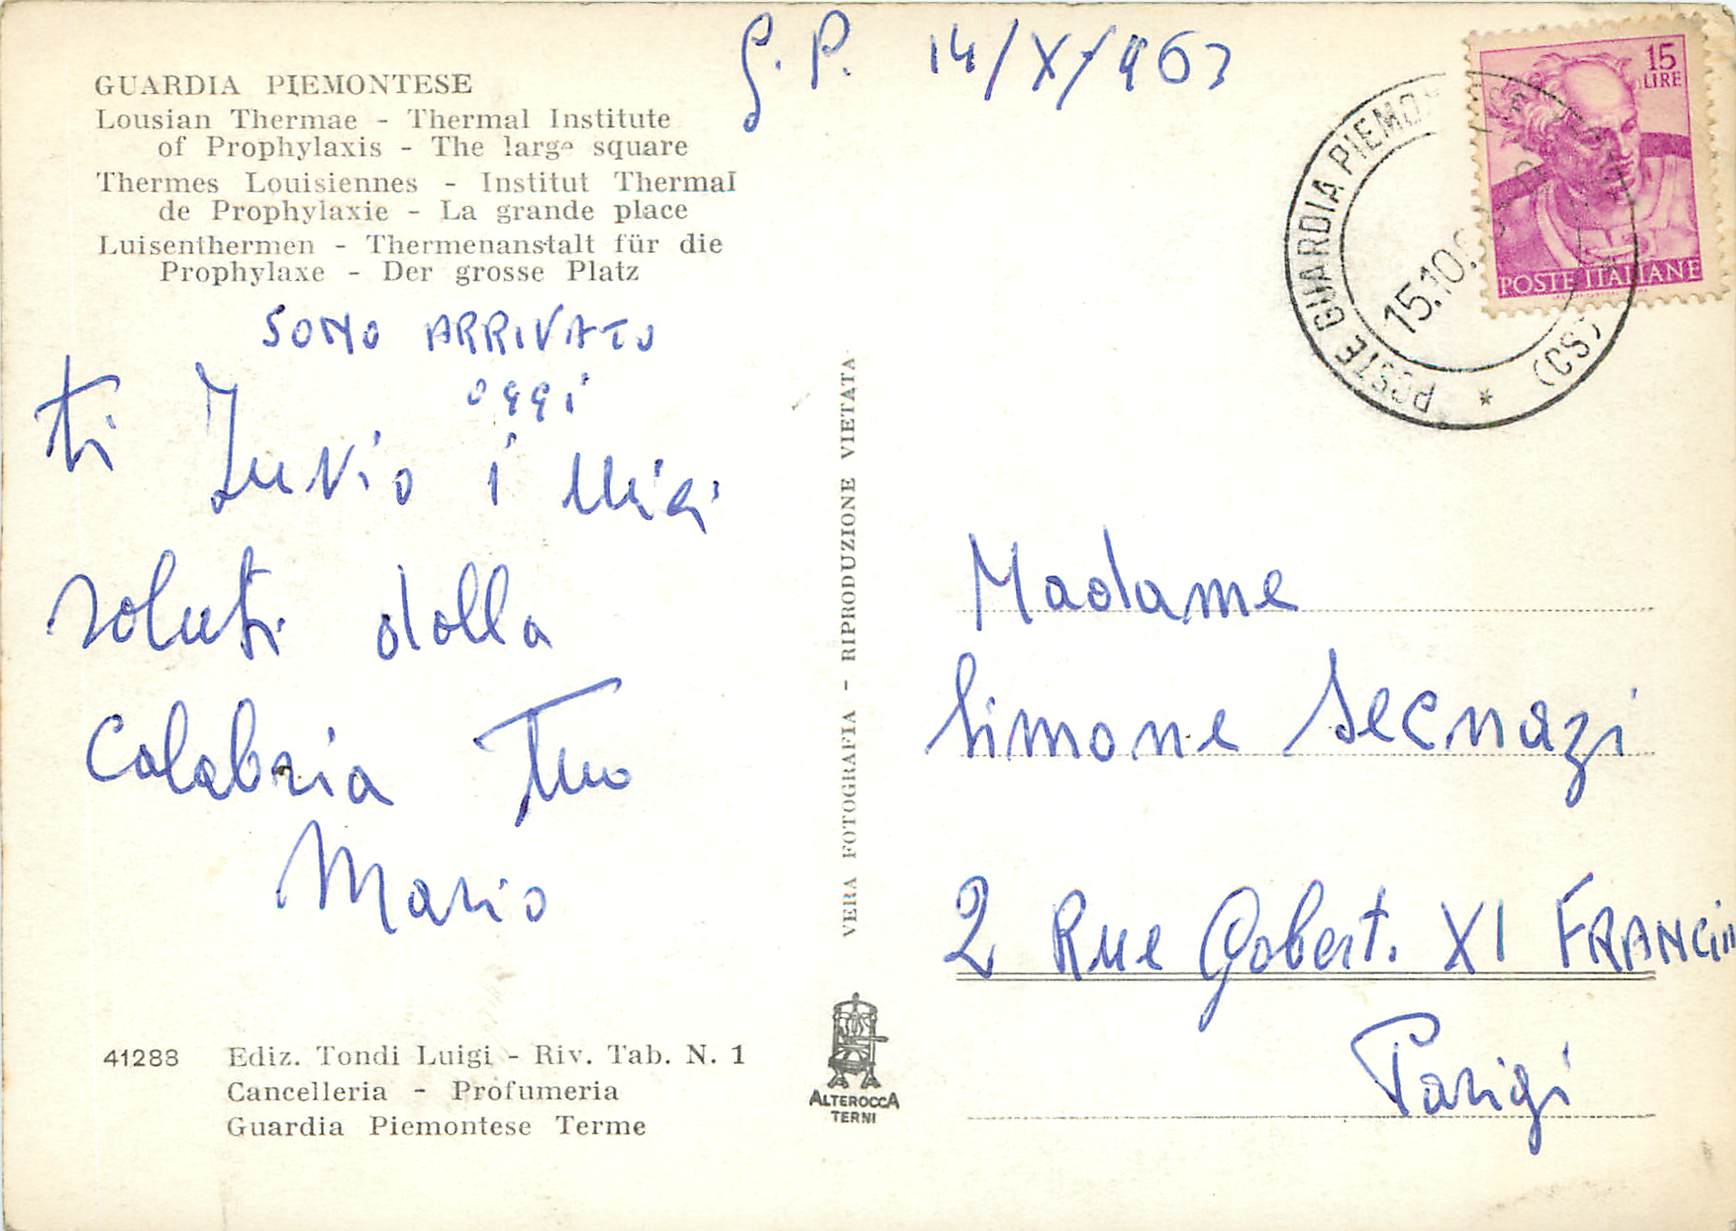 G.P. 14/X/963
GUARDIA PIEMONTESE
Lousian Thermae - Thermal Institute
of Prophylaxis - The large square
Thermes Louisiennes - Institut Thermal
de Prophylaxie - La grande place
Luisenthermen - Thermenanstalt für die
Prophylaxe - Der grosse Platz
SONO ARRIVATO
oggi
ti Invio i miei
saluti dalla
Calabria Tuo
Mario
41288 Ediz. Tondi Luigi - Riv. Tab. N. 1
Cancelleria - Profumeria
Guardia Piemontese Terme
VERA FOTOGRAFIA - RIPRODUZIONE VIETATA
ALTEROCCA
TERNI
15
LIRE
POSTE ITALIANE
POSTE GUARDIA PIEMONTESE
(CS) *
15.10
Madame
Simone Secnazi
2 Rue Gobert. XI
Parigi